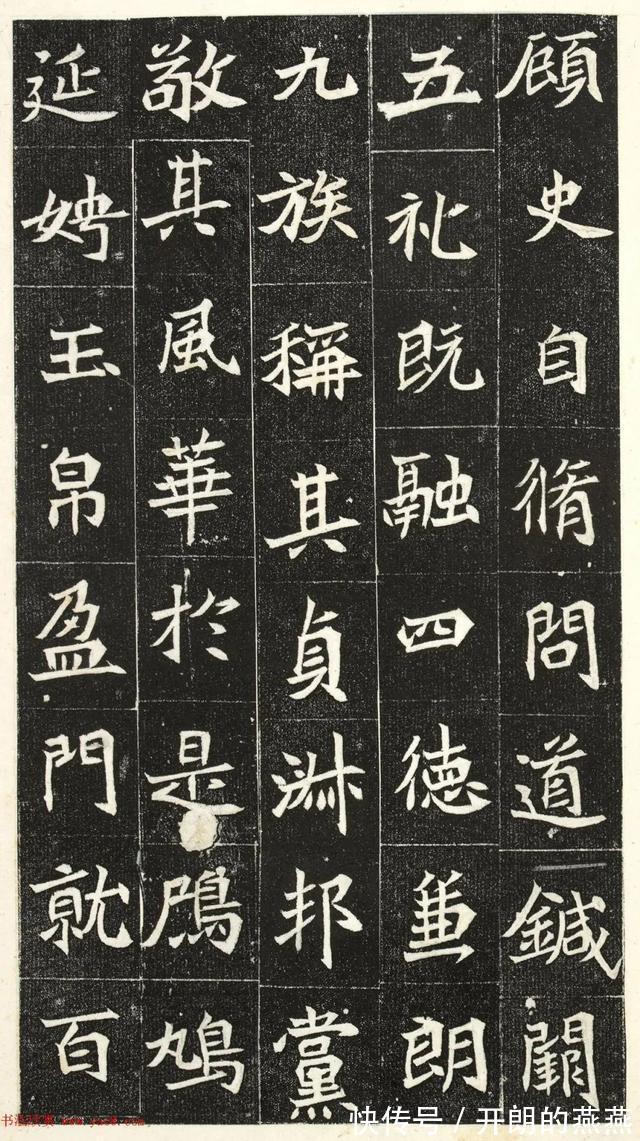 顧史自脩問道鍼
五礼既融四徳兼朗
九族稱其貞淑邦黨
敬其風華於是鴈鳩
延娉玉帛盈門就百
快传号 / 开朗的燕燕
书法欣赏 www.yac8.com